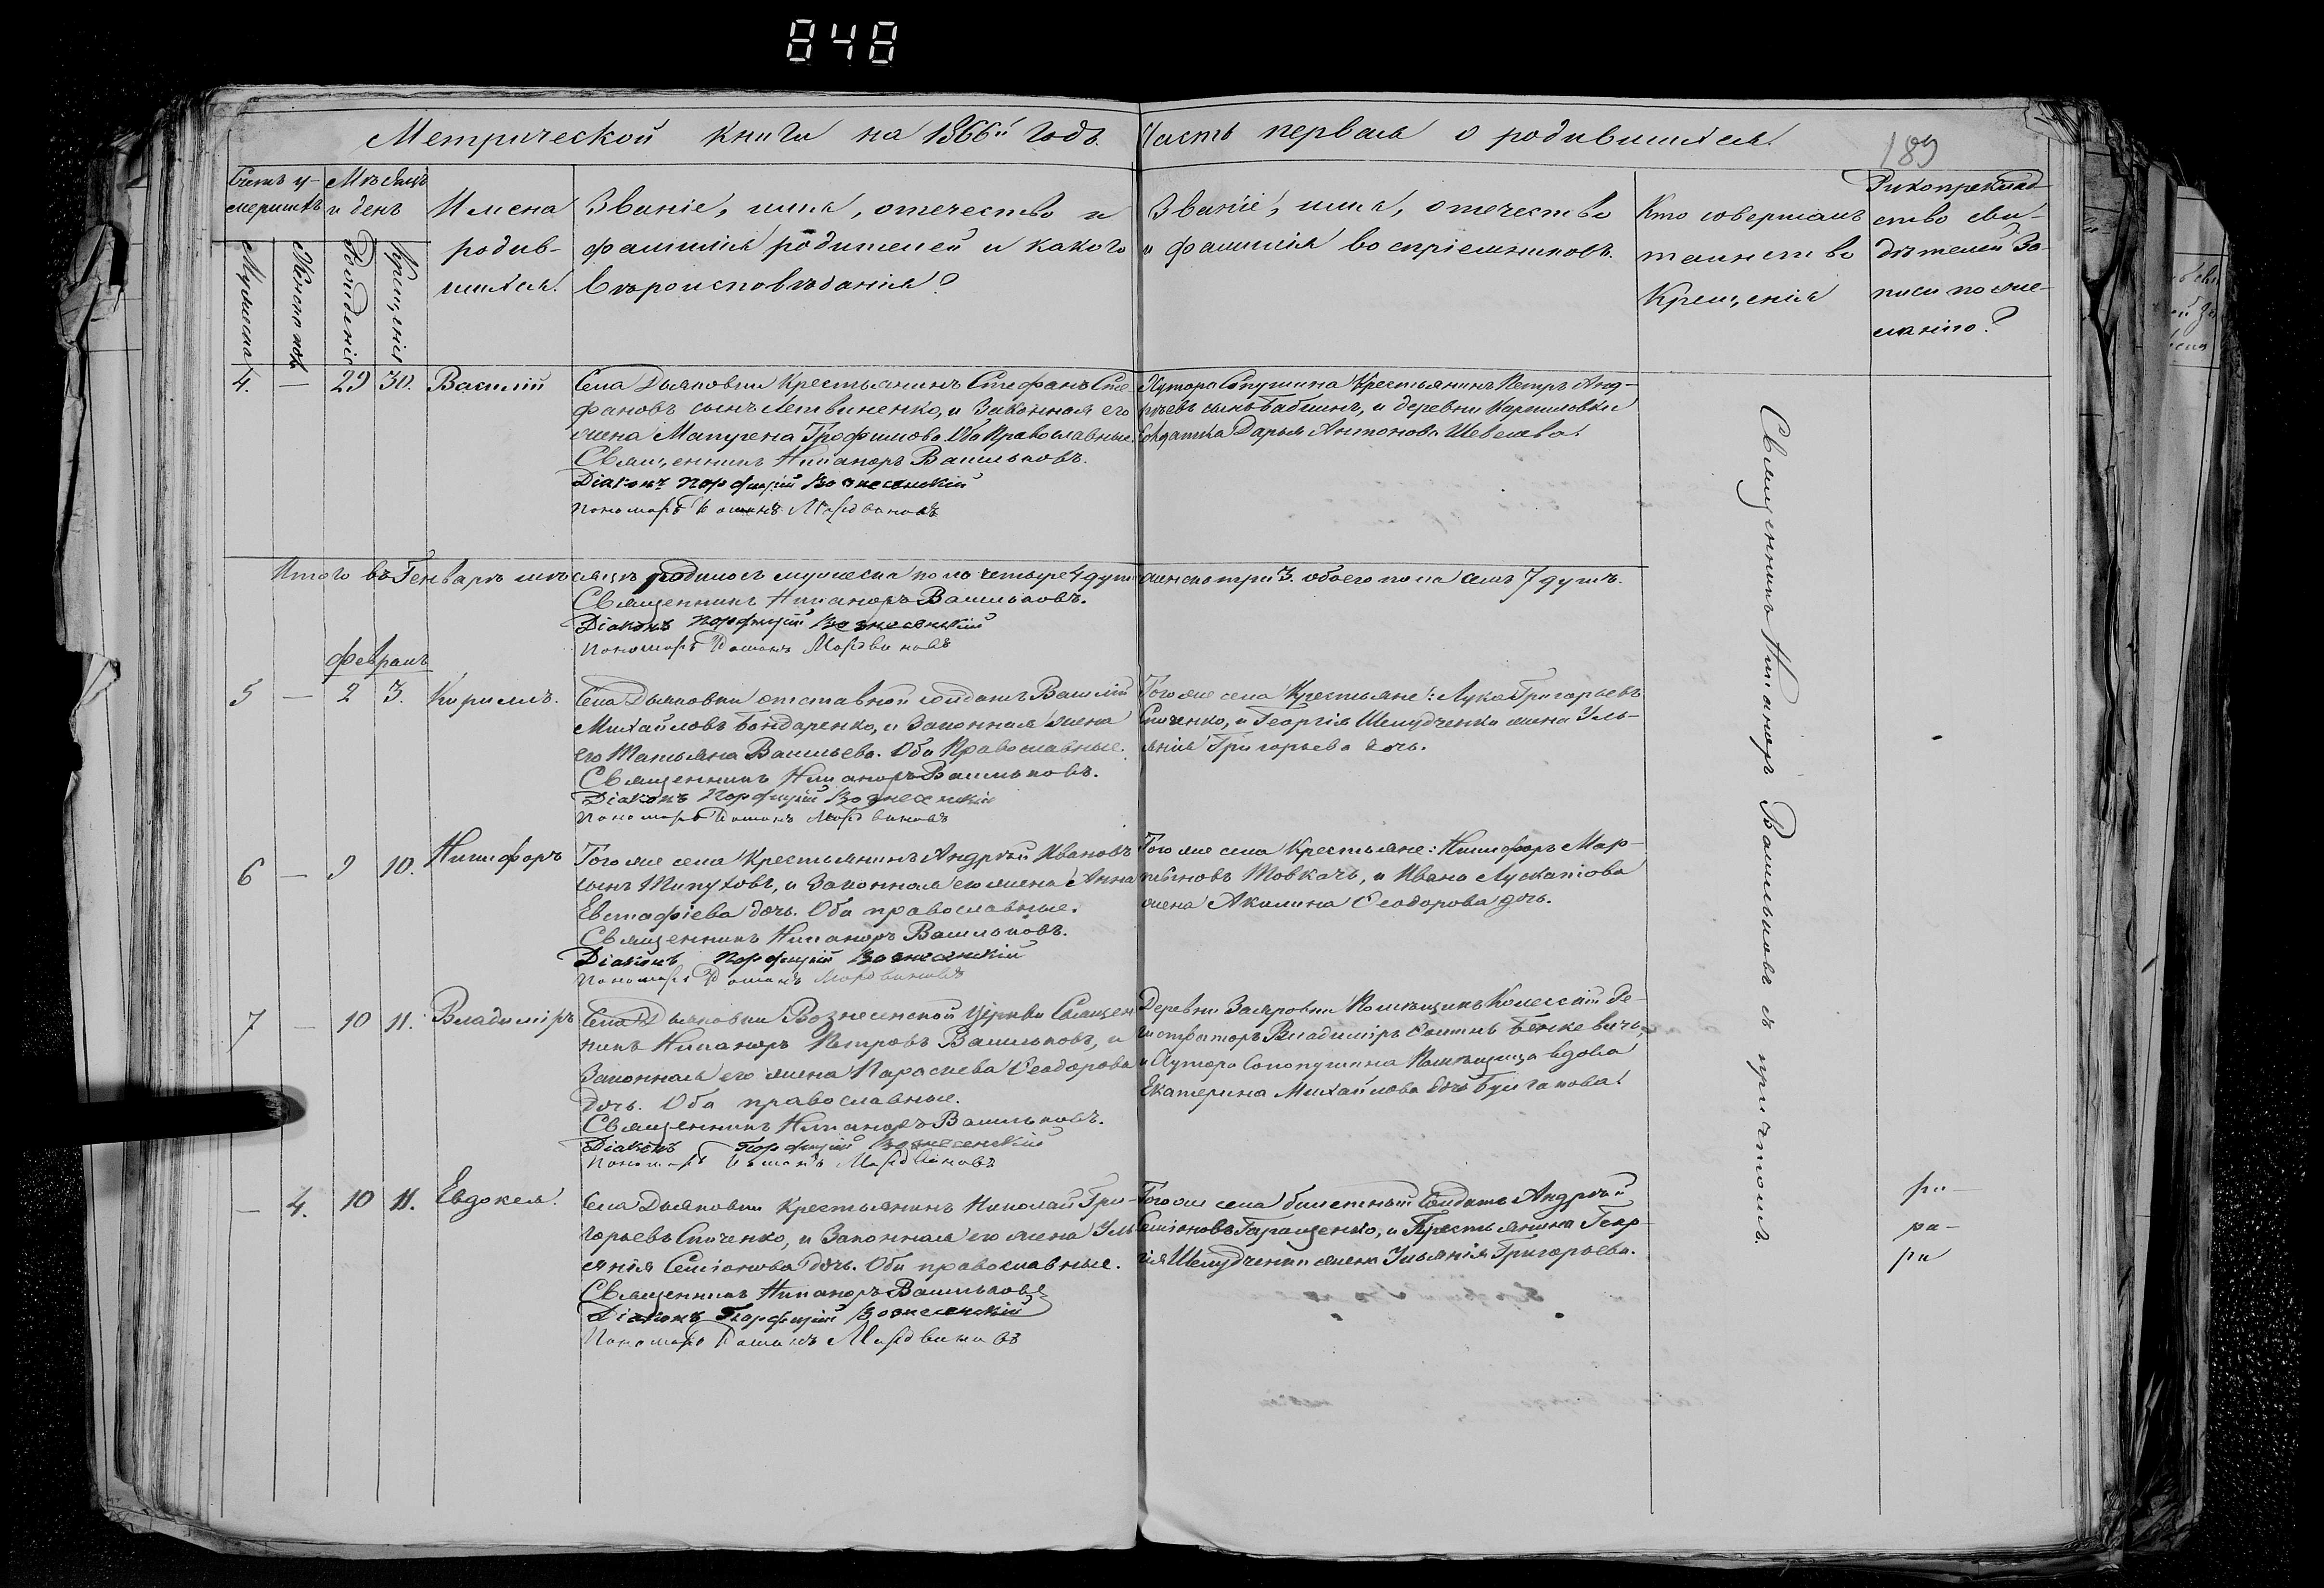 848
Метрической книги на 1866й годъ. Часть первая о родившихся.
189
Счетъ у-
мершихъ
Мѣсяцъ
и день
Мужеска
Женска пол.
Рожденія
Крещенія
Имена
родив-
шихся.
Званіе, имя, отечество и
фамилія родителей и какого
вѣроисповѣданія?
Званіе, имя, отечество
и фамилія воспріемниковъ.
Кто совершалъ
таинство
Крещенія
Рукоприклад-
ство сви-
дѣтелей за-
писи по же-
ланію?
4. — 29 30. Василій
Села Дьяковки Крестьянинъ Стефанъ Сте-
фановъ сынъ Летвиненко, и Законная его
жена Матрена Трофимова. Оба Православные.
Священникъ Никаноръ Васильковъ.
Діаконъ Порфирій Вознесенскій
Пономарь Романъ Мордвиновъ
Хутора Крестьянинъ Петръ Анд-
рѣевъ сынъ Бабкинъ, и деревни Карпиловки
Солдатка Дарья Антонова Шевелева.
Итого въ Генварѣ мѣсяцѣ родилось мужеска пола четыре 4 душ женска три 3. обоего пола семь 7 душъ.
Священникъ Никаноръ Васильковъ.
Діаконъ Порфирій Вознесенскій
Пономарь Романъ Мордвиновъ
Февраль
5 — 2 3. Кириллъ.
Села Дьяковки отставной солдатъ Василій
Михайловъ Бондаренко, и Законная жена
его Татьяна Васильева. Оба Православные.
Священникъ Никаноръ Васильковъ.
Діаконъ Порфирій Вознесенскій
Пономарь Романъ Мордвиновъ
Того же села Крестьяне: Лука Григорьевъ
Спиченко, и Георгія Шелудченка жена Уль-
янія Григорьева дочь.
6 — 9 10. Никифоръ
Того же села Крестьянинъ Андрѣй Ивановъ
сынъ Типуховъ, и Законная его жена Анна
Евстафіева дочь. Оба православные.
Священникъ Никаноръ Васильковъ.
Діаконъ Порфирій Вознесенскій
Пономарь Романъ Мордвиновъ
Того же села Крестьяне: Никифоръ Мар-
Товкачъ, и Ивана
жена Акилина Ѳеодорова дочь.
7 — 10 11. Владиміръ
Села Дьяковки Вознесенской Церкви Священ-
никъ Никаноръ Петровъ Васильковъ, и
Законная его жена Параскева Ѳеодорова
дочь. Оба православные.
Священникъ Никаноръ Васильковъ.
Діаконъ Порфирій Вознесенскій
Пономарь Романъ Мордвиновъ
Деревни Помѣщикъ Колежскій Ре-
гистраторъ Владиміръ Бенкевичъ,
и Хутора Сопопушина Помѣщица вдова
Екатерина Михайлова дочь Булгакова.
— 4. 10 11. Евдокея.
Села Дьяковки Крестьянинъ Николай Гри-
горьевъ Спиченко, и Законная его жена Уль-
янія Семіонова дочь. Оба православные.
Священникъ Никаноръ Васильковъ
Діаконъ Порфирій Вознесенскій
Пономарь Романъ Мордвиновъ
Того же села билетный Солдатъ Андрѣй
Семіоновъ Таращенко, и Крестьянина Геор-
гія Шелудченка жена Ульянія Григорьева.
Священникъ Никаноръ Васильковъ съ причтомъ.